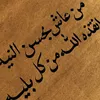 من عاش بحسن النية
انقذه الله من كل بلية